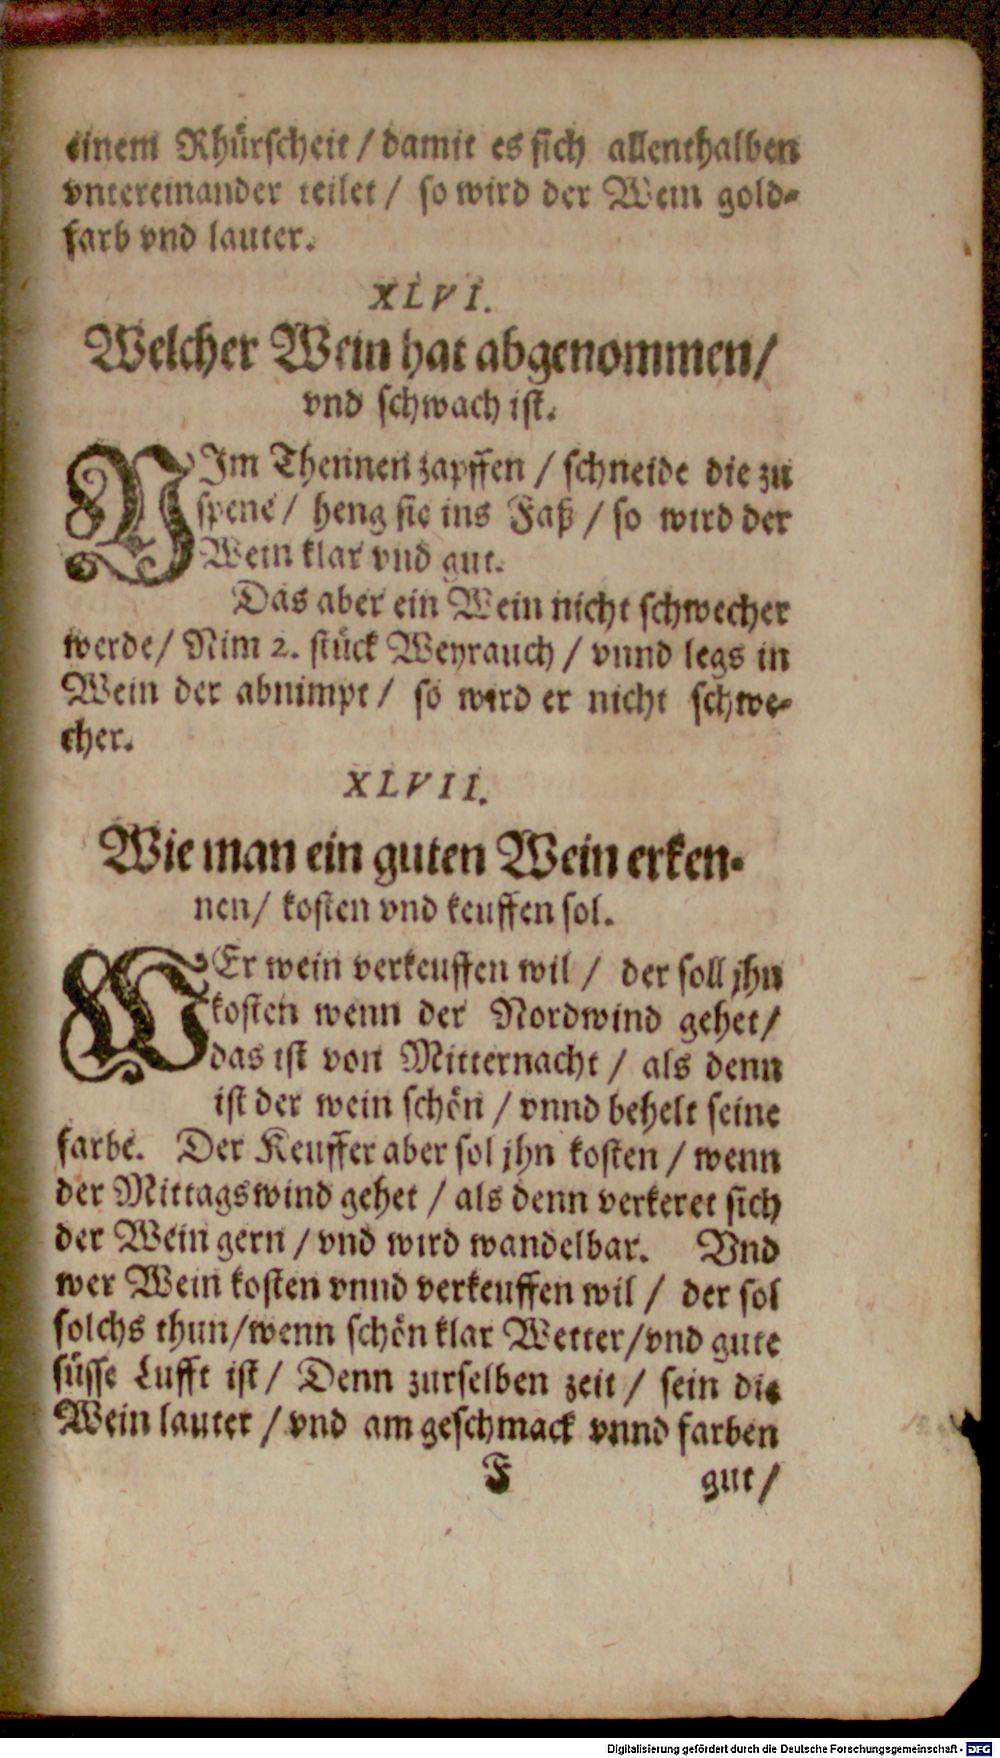 einem Rhürscheit / damit es sich allenthalben
vntereinander teilet / so wird der Wein gold-
farb vnd lauter.
XLVI.
Welcher Wein hat abgenommen /
vnd schwach ist.
NIm Thennen zapffen / schneide die zu
spene / heng sie ins Faß / so wird der
Wein klar vnd gut.
Das aber ein Wein nicht schwecher
werde / Nim 2. stück Weyrauch / vnnd legs in
Wein der abnimpt / so wird er nicht schwe-
cher.
XLVII.
Wie man ein guten Wein erken-
nen / kosten vnd keuffen sol.
WEr wein verkeuffen wil / der soll jhn
kosten wenn der Nordwind gehet /
das ist von Mitternacht / als denn
ist der wein schön / vnnd behelt seine
farbe. Der Keuffer aber sol jhn kosten / wenn
der Mittagswind gehet / als denn verkeret sich
der Wein gern / vnd wird wandelbar. Vnd
wer Wein kosten vnnd verkeuffen wil / der sol
solchs thun / wenn schön klar Wetter / vnd gute
süsse Lufft ist / Denn zurselben zeit / sein die
Wein lauter / vnd am geschmack vnnd farben
F gut /
Digitalisierung gefördert durch die Deutsche Forschungsgemeinschaft - DFG